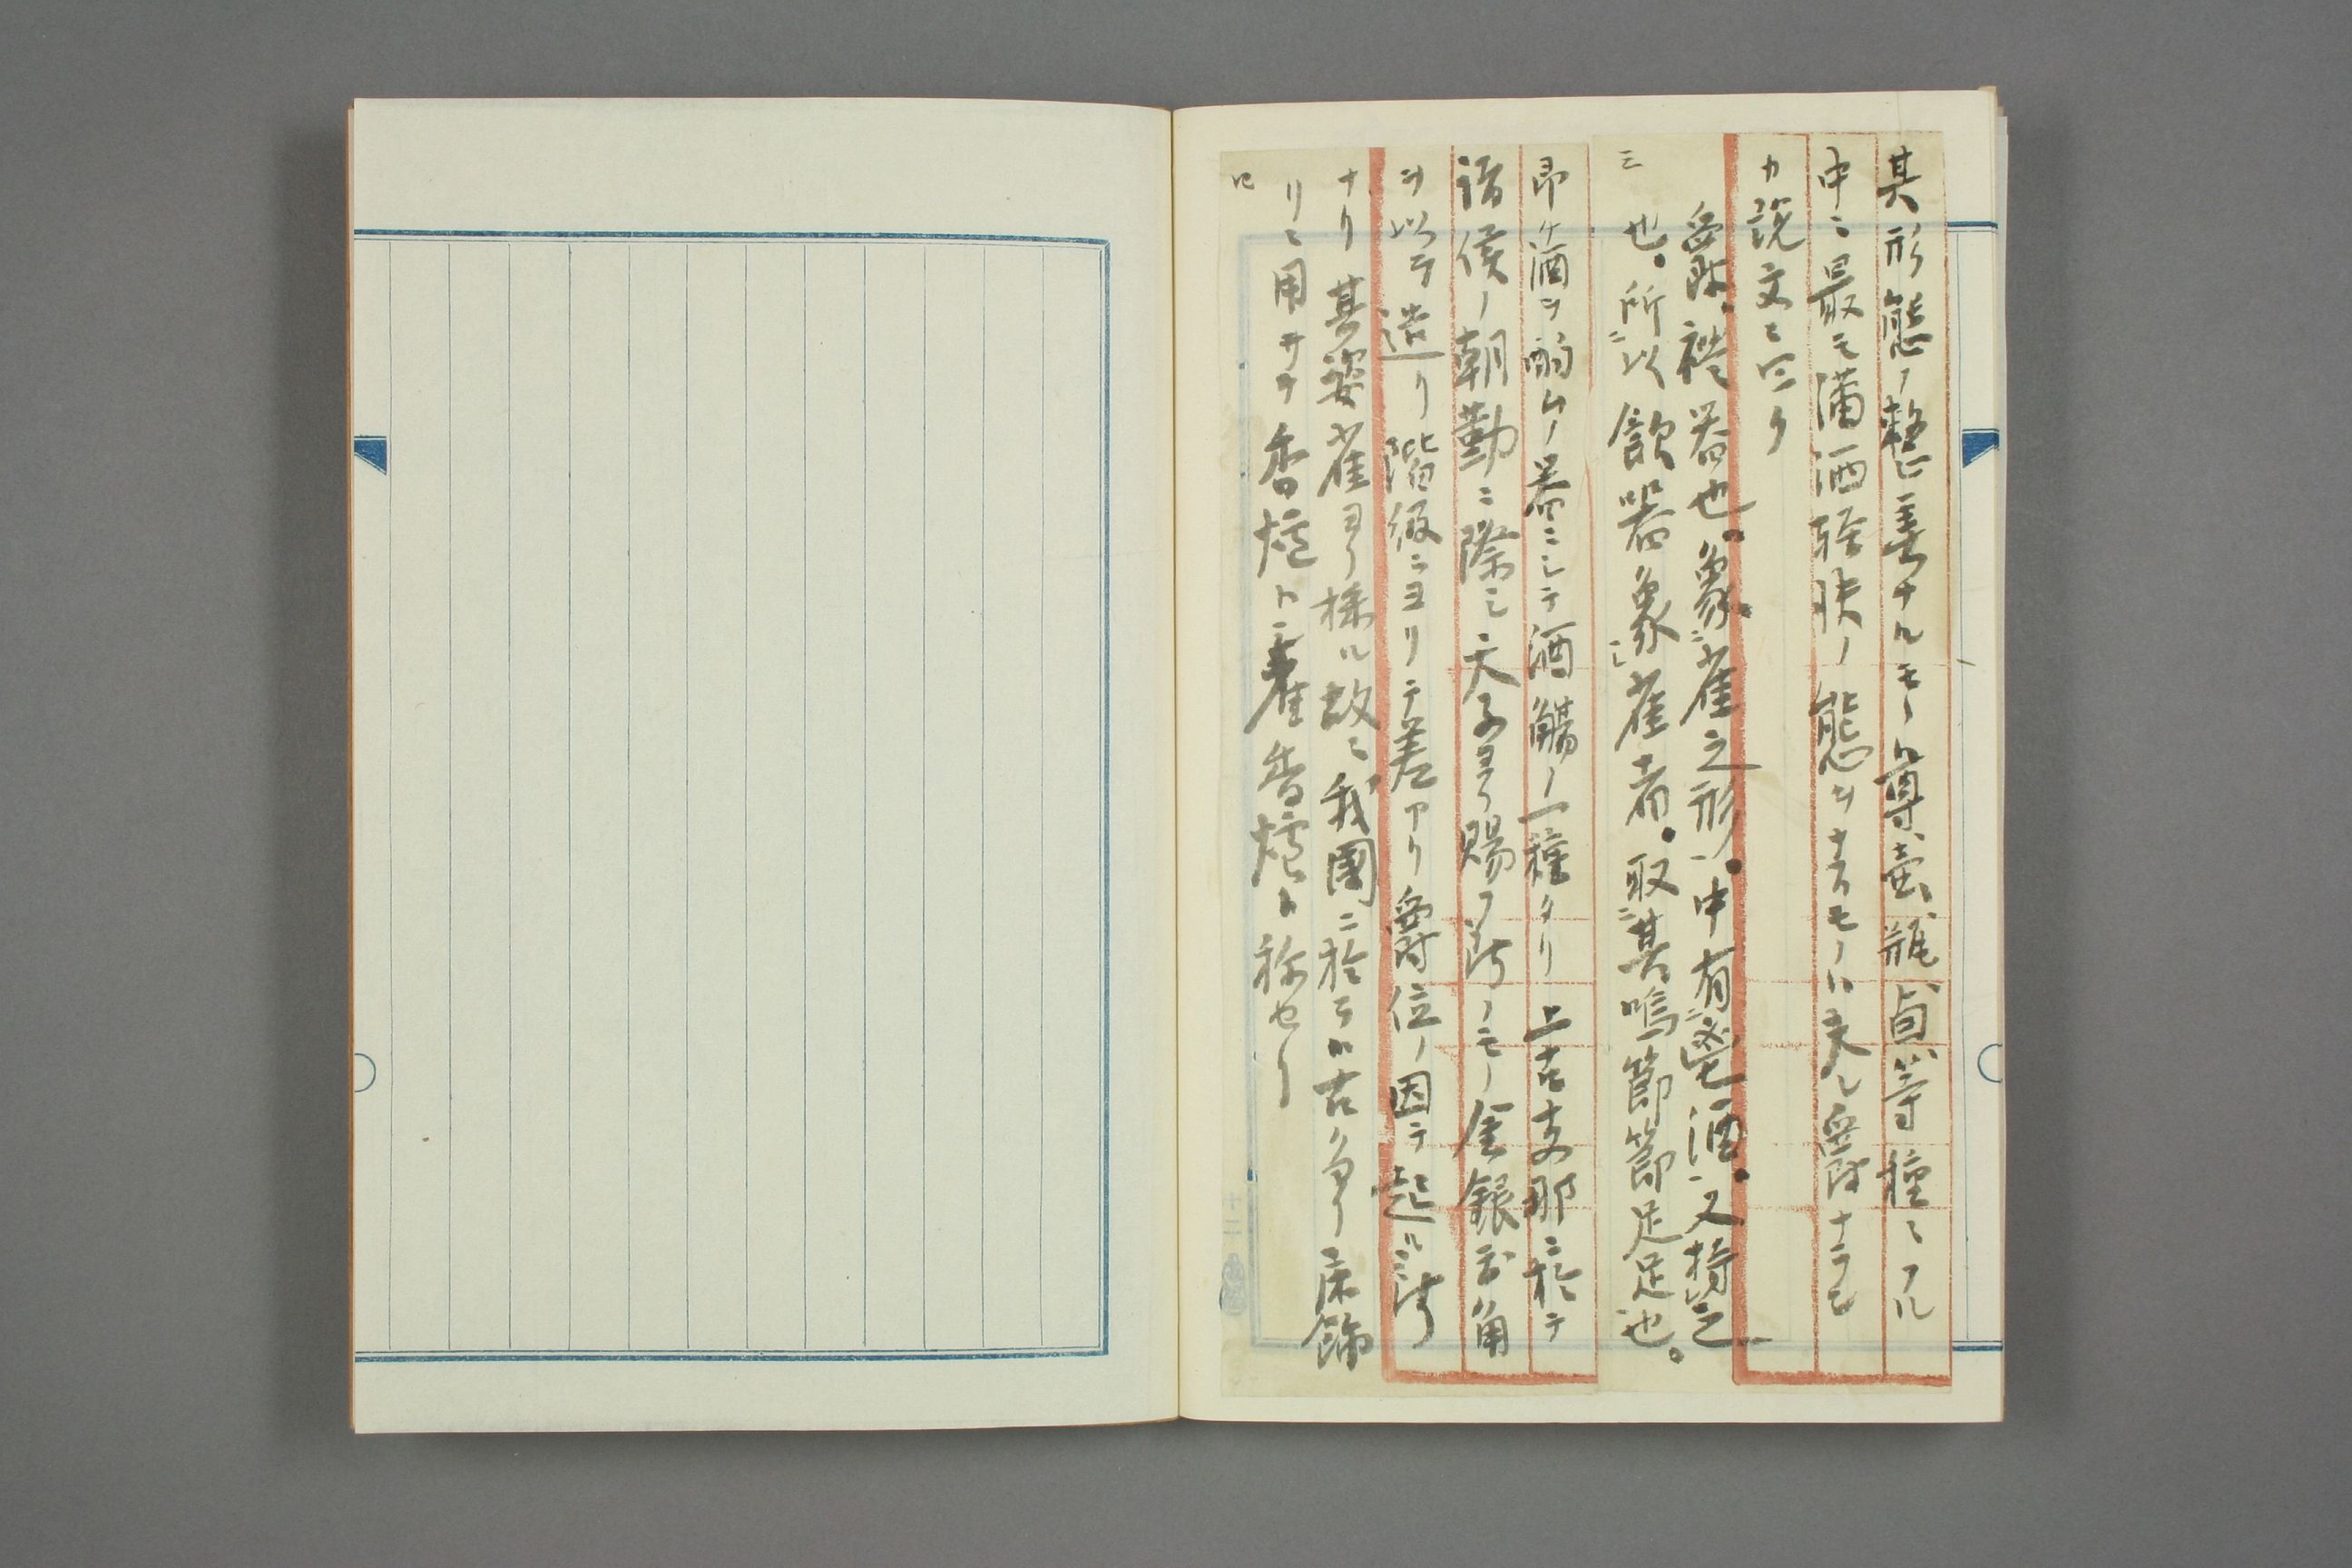 其形態ノ整善ナルモノ尊、壺、瓶、卣、等種々アル
中ニ最モ瀟洒軽快ノ態ヲナスモノハ夫レ爵ナラモ
カ説文ニ曰ク
爵。禮器也。象雀之形。中有鬯酒。又持之
也。所以飲器象雀者。取其鳴節節足足也。
三
即ケ酒ヲ酌ムノ器ニシテ酒觴ノ一種タリ上古支那ニ於テ
諸侯ノ朝勤ニ際シ天子ヨリ賜フ所ノモノ金銀玉角
ヲ以テ造リ階級ニヨリテ差アリ爵位ノ因テ起ル所
ナリ其姿雀ヨリ採ル故ニ我國ニ於テハ古ク床飾
リニ用ヰテ香炉ト雀香爐ト称セリ